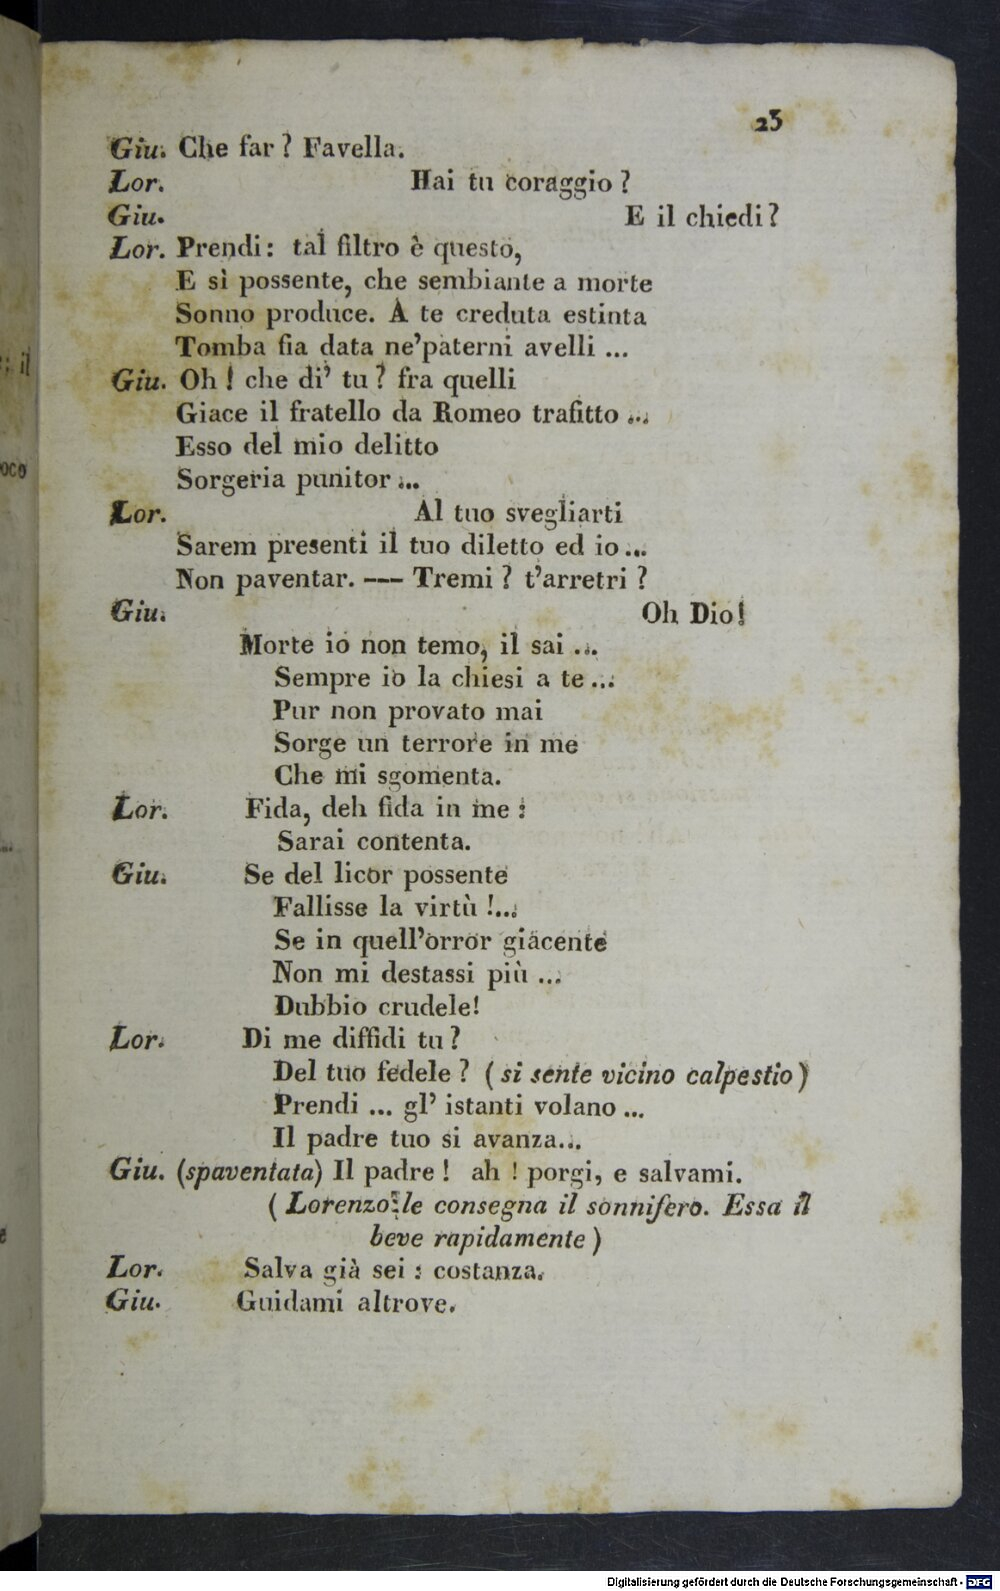 23
Giu. Che far? Favella.
Lor. Hai tu coraggio?
Giu. E il chiedi?
Lor. Prendi: tal filtro è questo,
E sì possente, che sembiante a morte
Sonno produce. A te creduta estinta
Tomba fia data ne'paterni avelli ...
Giu. Oh! che di' tu? fra quelli
Giace il fratello da Romeo trafitto ...
Esso del mio delitto
Sorgeria punitor ...
Lor. Al tuo svegliarti
Sarem presenti il tuo diletto ed io ...
Non paventar. — Tremi? t'arretri?
Giu. Oh Dio!
Morte io non temo, il sai ...
Sempre io la chiesi a te ...
Pur non provato mai
Sorge un terrore in me
Che mi sgomenta.
Lor. Fida, deh fida in me:
Sarai contenta.
Giu. Se del licor possente
Fallisse la virtù!...
Se in quell'orror giacente
Non mi destassi più ...
Dubbio crudele!
Lor. Di me diffidi tu?
Del tuo fedele? (si sente vicino calpestio)
Prendi ... gl' istanti volano ...
Il padre tuo si avanza...
Giu. (spaventata) Il padre! ah! porgi, e salvami.
(Lorenzo le consegna il sonnifero. Essa il
beve rapidamente)
Lor. Salva già sei: costanza.
Giu. Guidami altrove.
; il
oco
Digitalisierung gefördert durch die Deutsche Forschungsgemeinschaft - DFG